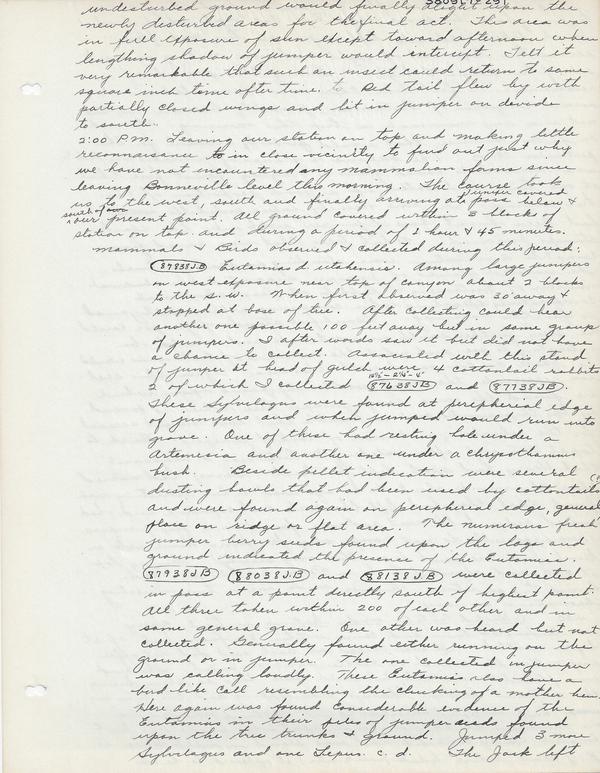 undisturbed ground would finally alight upon the
newly disturbed areas for the final act. This area was
in full exposure of sun except toward afternoon when
lengthing shadow of jumper would intercept. Felt it
very remarkable that such an insect could return to same
square inch time after time. Red tail flew by with
partially closed wings and lit in jumper on divide
to south.
2:00 P.M. Leaving our station on top and making little
reconnaisance to in close vicinity to find out just why
we have not encountered any mammalian forms since
leaving Bonneville level this morning. The course took
us to the west, south and finally arriving at a pass below &
jumper covered
south of our
our present point. All ground covered within 3 blocks of
station on top and during a period of 1 hour & 45 minutes.
Mammals & Birds observed & collected during this period:
87838JB Eutamias d. utahensis. Among large junipers
on west exposure near top of canyon about 2 blocks
to the S.W. When first observed was 30' away &
stopped at base of tree. After collecting could hear
another one possible 100 feet away but in same group
of jumpers. I after words saw it but did not have
a chance to collect. Associated with this stand
of jumper at head of gulch were 4 cottontail rabbits
2 of which I collected 87638JB and 87738JB.
These Sylvilagus were found at peripherial edge
of jumpers and when jumped would run into
grove. One of these had resting hole under a
Artemesia and another one under a chrysothamnus
bush. Beside pellet indication were several
dusting bowls that had been used by cottontails
and were found again on peripherial edge, general
place on ridge or flat area. The numerous fresh
jumper berry seeds found upon the logs and
ground indicated the presence of the Eutamias.
87938JB 88038JB and 88138JB were collected
in pass at a point directly south of highest point.
All three taken within 200 of each other and in
same general grove. One other was heard but not
collected. Generally found either running on the
ground or in jumper. The one collected in jumper
was calling loudly. These Eutamias also have a
bird like call resembling the clucking of a mother hen.
Here again was found considerable evidence of the
Eutamias in their piles of jumper seeds found
upon the tree trunks & ground. Jumped 3 more
Sylvilagus and one Lepus c. d. The Jack left